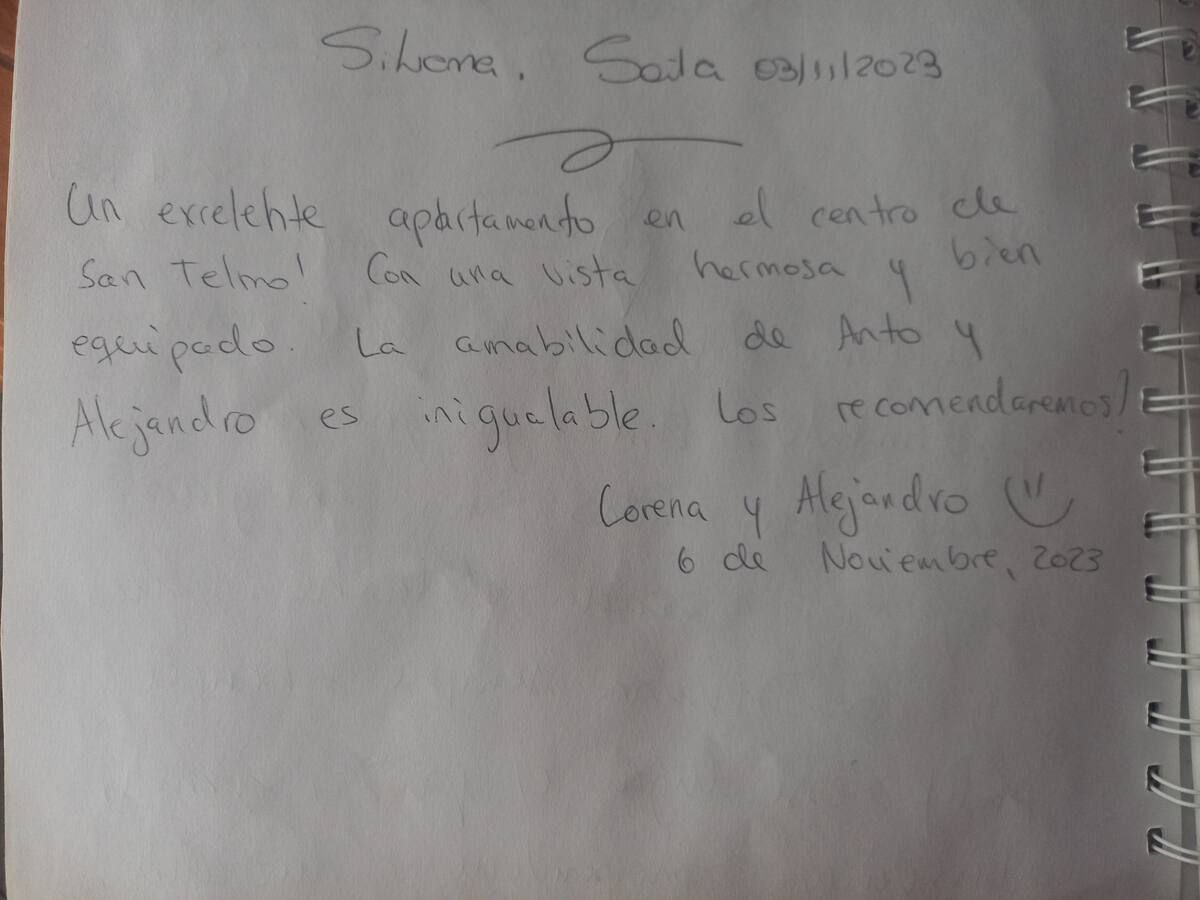 Silvana. Saila 03/11/2023
Un excelente apartamento en el centro de
San Telmo! Con una vista hermosa y bien
equipado. La amabilidad de Anto y
Alejandro es inigualable. Los recomendaremos!
Lorena y Alejandro
6 de Noviembre, 2023